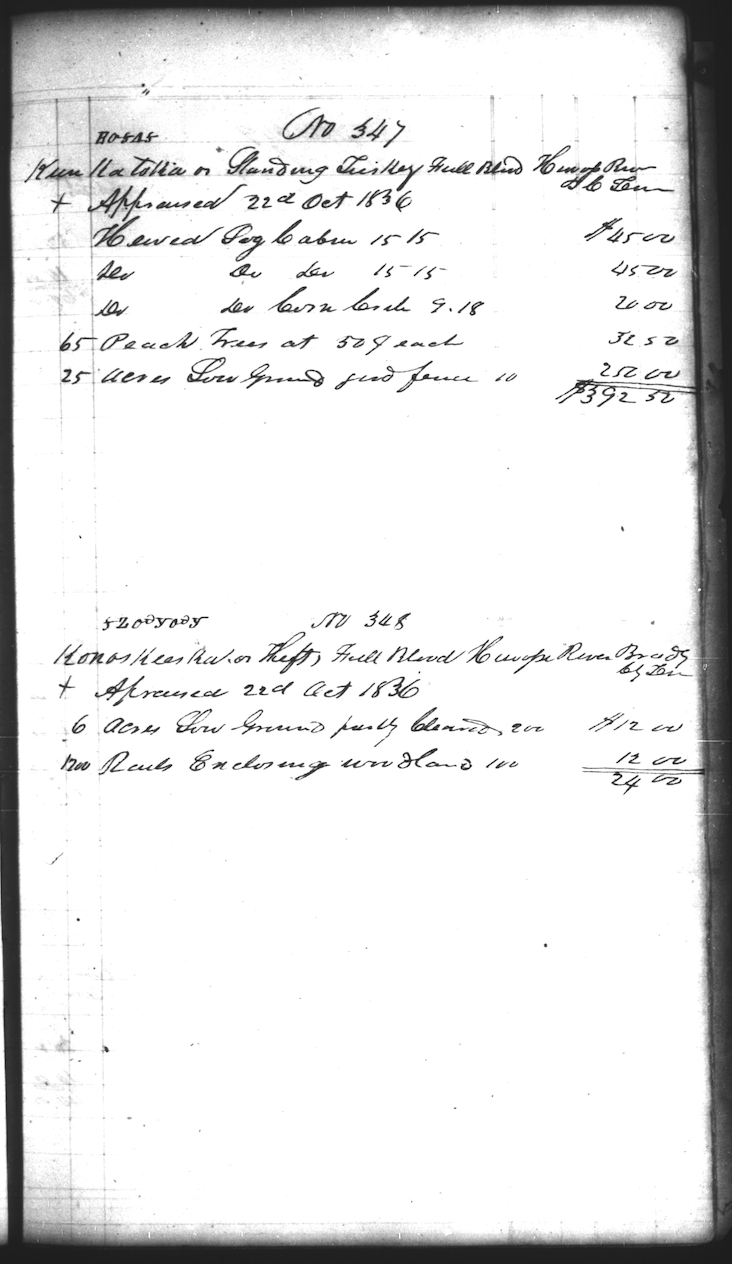 No 347
Kun Ka toKa or Standing Turkey Full Blood Hiwope River
B C Ten
+ Appraised 22d Oct 1836
Hewed Log Cabin 15 15 $45 00
Do Do Do 15-15 45 00
Do Do Corn Crib 9.18 20 00
65 Peach Trees at 50¢ each 32 50
25 Acres Low Ground good fence 10 250 00
$392 50
No 348
Konos Kees Ka or Theft, Full Blood Hiwope River Bradly
Cty Ten
+ Apraised 22d Oct 1836
6 Acres Low Ground partly Cleared, 200 $12 00
1200 Rails Enclosing woodland 100 12 00
24 00